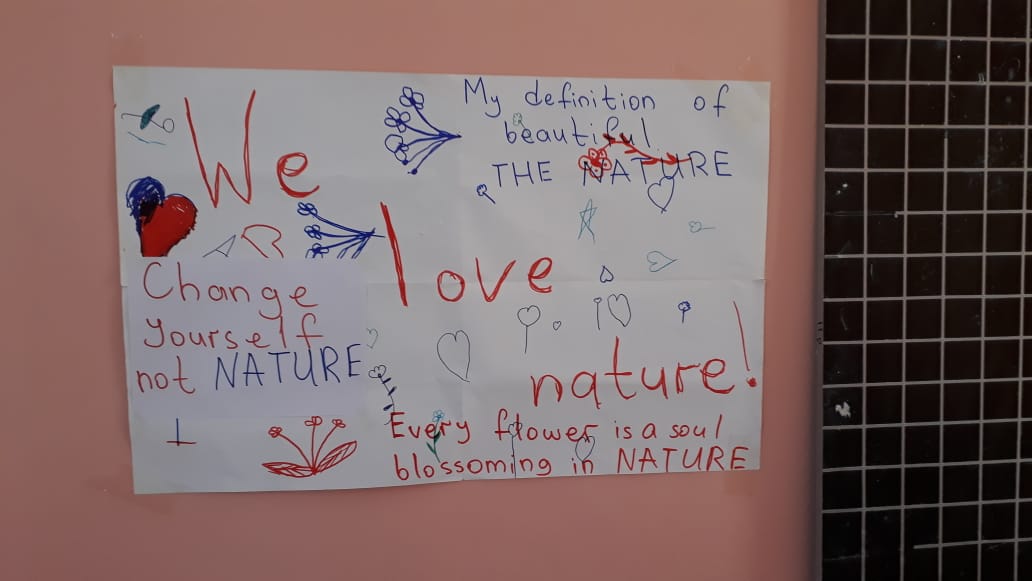 We
love
nature!
My definition of
beautiful
THE NATURE
Change
yourself
not NATURE
Every flower is a soul
blossoming in NATURE